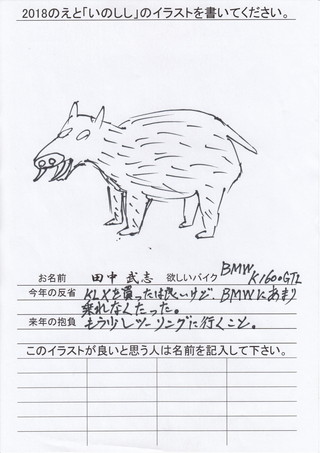 2018のえと「いのしし」のイラストを書いてください。
お名前 田中 武志 欲しいバイク BMW K1600GTL
今年の反省 KLXを買ったは良いけど、BMWにあまり
乗れなくなった。
来年の抱負 もう少しツーリングに行くこと。
このイラストが良いと思う人は名前を記入して下さい。